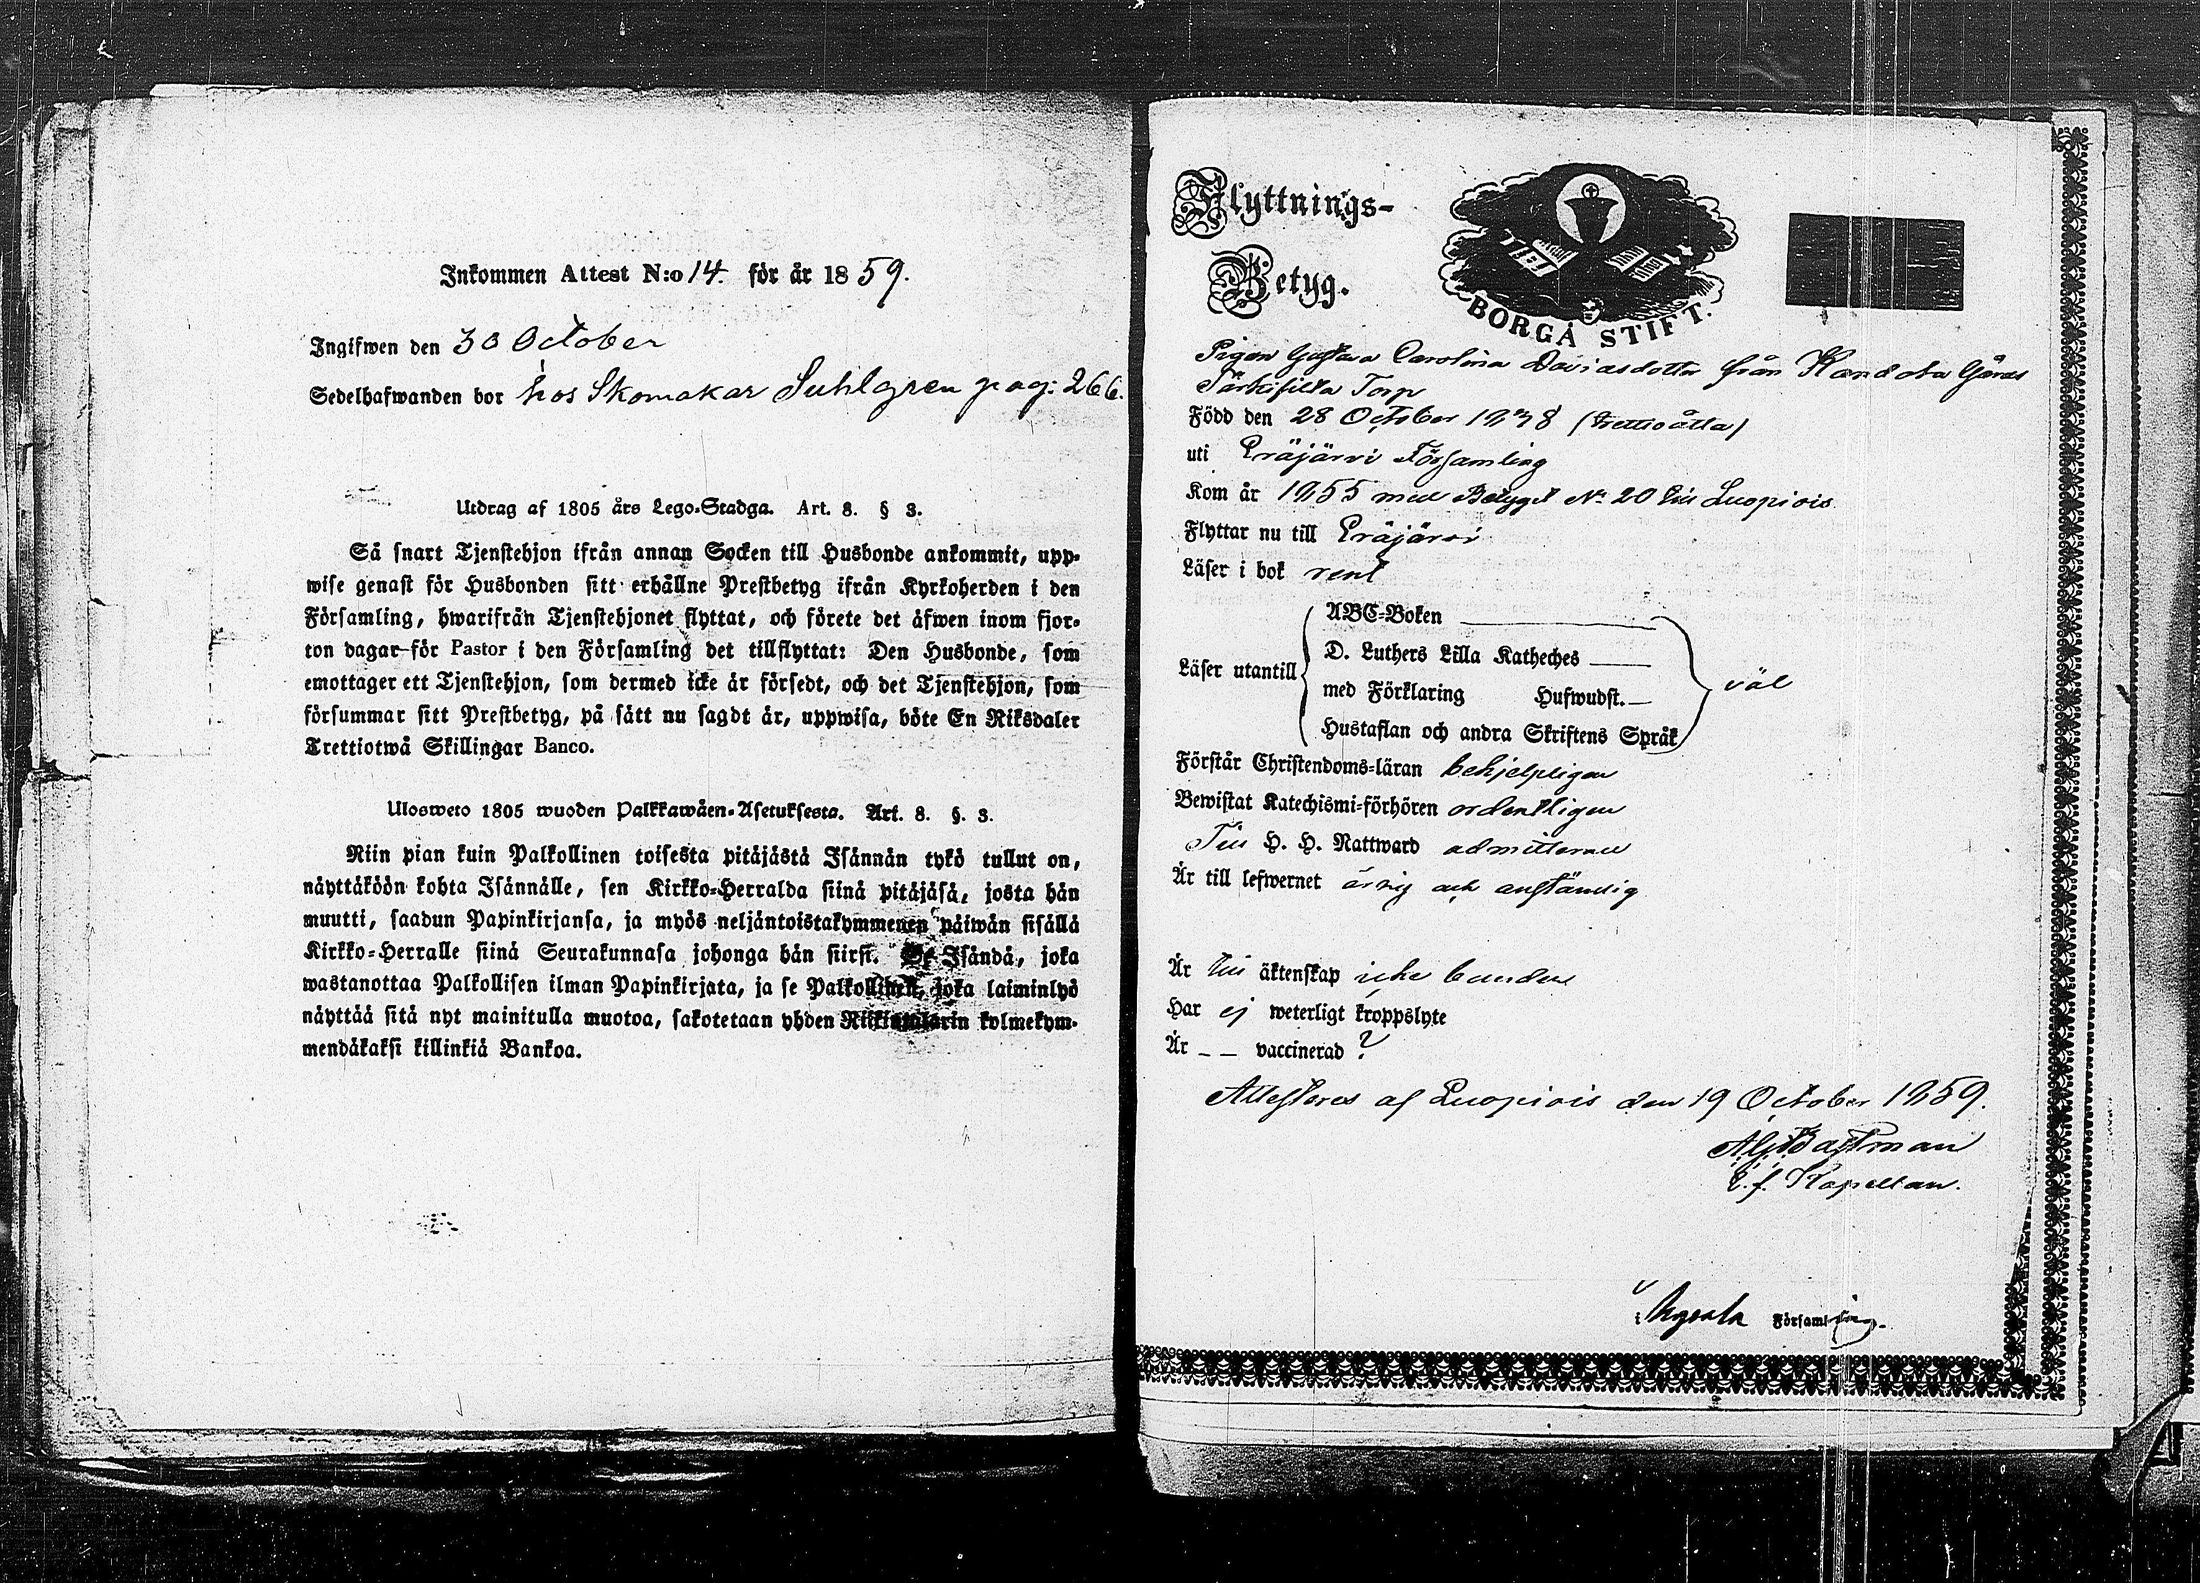 Inkommen Attest N:o 14. för år 1859.
Ingifwen den 30 October
Sedelhafwanden bor hos Skomakar Suhlgren pag: 266.
Utdrag af 1805 års Lego-Stadga. Art. 8. § 3.
Så snart Tjenstehjon ifrån annan Socken till Husbonde ankommit, upp-
wise genast för Husbonden sitt erhållne Prestbetyg ifrån Kyrkoherden i den
Församling, hwarifrån Tjenstehjonet flyttat, och förete det äfwen inom fjor-
ton dagar för Pastor i den Församling det tillflyttat: Den Husbonde, som
emottager ett Tjenstehjon, som dermed icke är försedt, och det Tjenstehjon, som
försummar sitt Prestbetyg, på sätt nu sagdt är, uppwisa, böte En Riksdaler
Trettiotwå Skillingar Banco.
Ulosweto 1805 wuoden Palkkawäen-Asetuksesta. Art. 8. §. 3.
Niin pian kuin Palkollinen toisesta pitäjästä Isännän tykö tullut on,
näyttäköön kohta Isännälle, sen Kirkko-Herralda siinä pitäjäsä, josta hän
muutti, saadun Papinkirjansa, ja myös neljäntoistakymmenen päiwän sisällä
Kirkko-Herralle siinä Seurakunnasa johonga hän siirsi. Se Isändä, joka
wastanottaa Palkollisen ilman Papinkirjata, ja se Palkollinen, joka laiminlyö
näyttää sitä nyt mainitulla muotoa, sakotetaan yhden Riikintalarin kolmekym-
mendäkaksi killinkiä Bankoa.
Flyttnings-
Betyg.
BORGÅ STIFT.
Pigan Gustava Carolina Davidsdotter från Kandola Gårds
Särkisilta Torp
Född den 28 October 1838 (trettioåtta)
uti Eräjärvi Församling
Kom år 1855 med Betyget No 20 till Luopiois
Flyttar nu till Eräjärvi
Läser i bok rent
ABC-Boken
D. Luthers Lilla Katheches
Läser utantill
med Förklaring Hufwudst.
väl
Hustaflan och andra Skriftens Språk
Förstår Christendoms-läran behjelpligen
Bewistat Katechismi-förhören ordentligen
Till H. H. Nattward admitterad
Är till lefwernet ärlig och anständig
Är till äktenskap icke bunden
Har ej weterligt kroppslyte
Är -- vaccinerad ?
Attesteras af Luopiois den 19 October 1859.
Bastman
E. f. Kapellan.
i Församling.